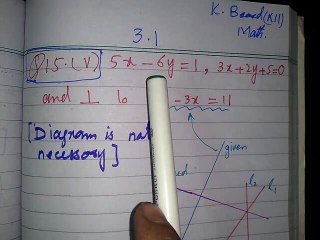 K. Board (XII)
Math.
3.1
Q15.(V) 5x - 6y = 1 , 3x + 2y + 5 = 0
and ⊥ - 3x = 11
[Diagram is
necessary]
given
l₂ l₁